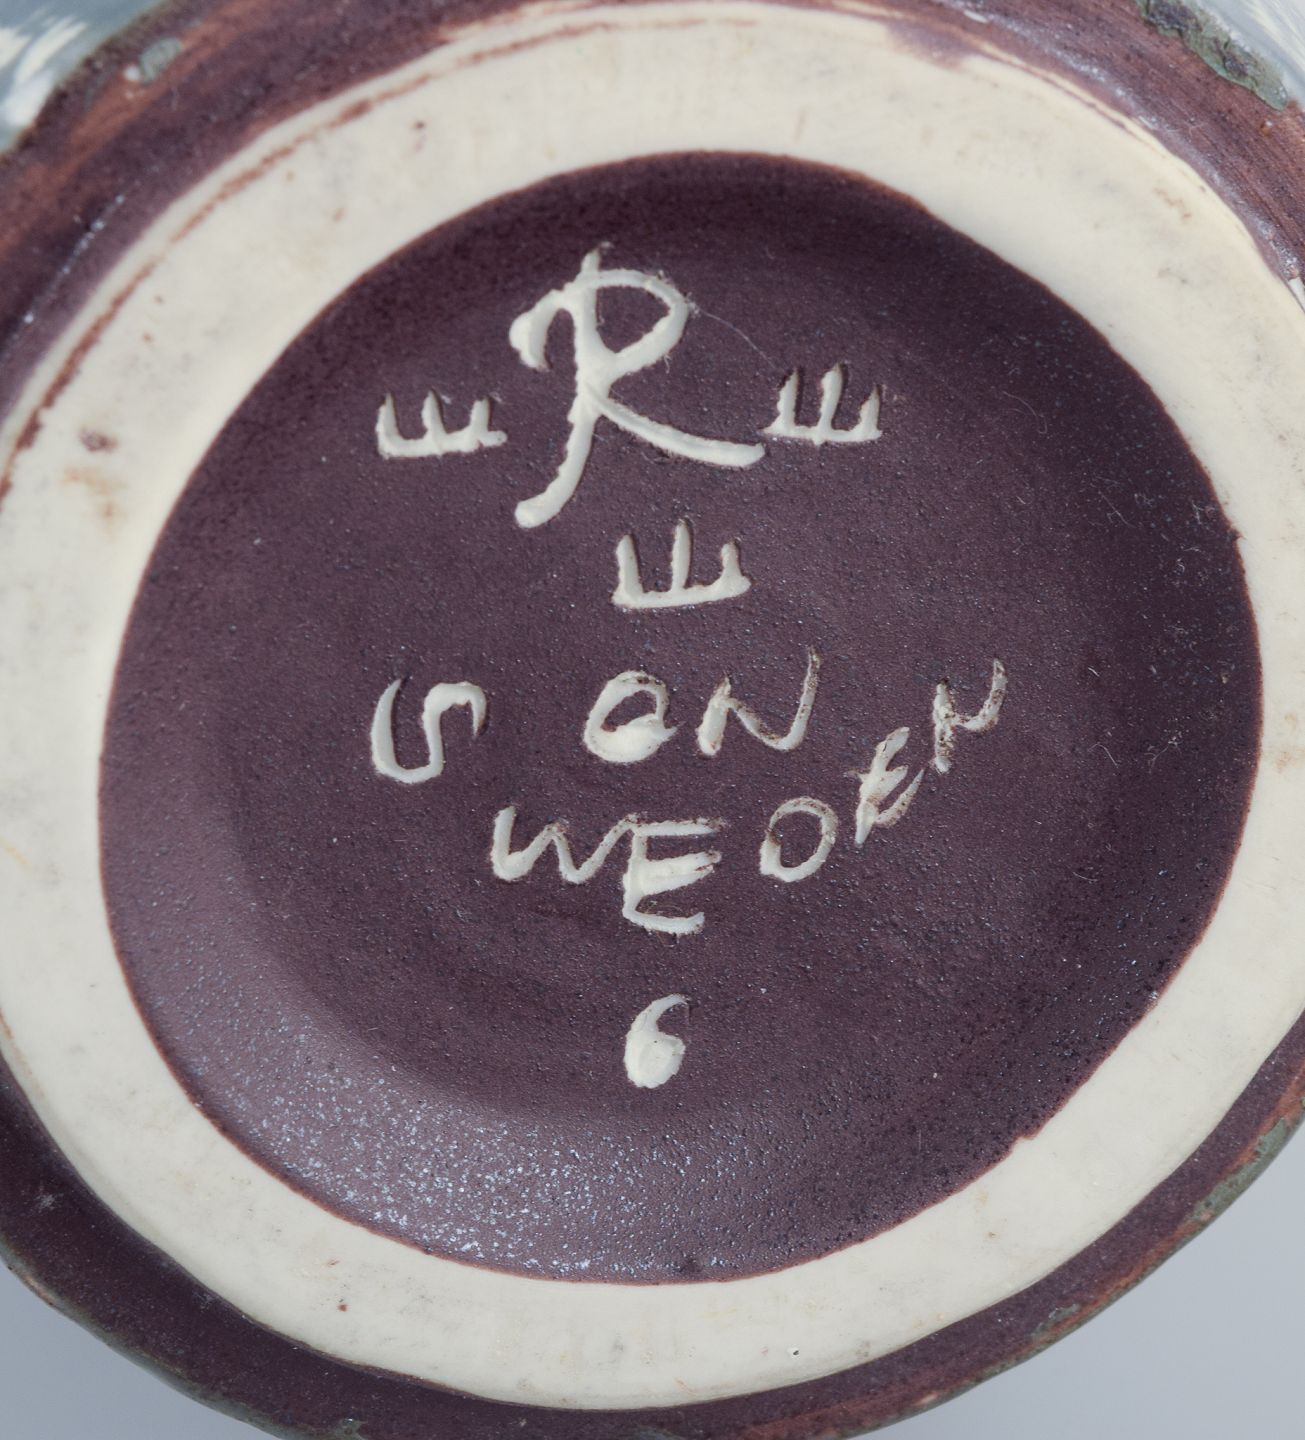 R
GN
SWEDEN
6